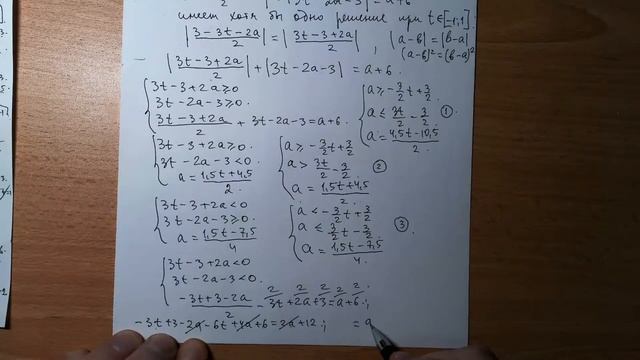 2 |3t 2a-3| = a+6
имеет хотя бы одно решение при t∈[-1,1]
|3-3t-2a/2| = |3t-3+2a/2|, |a-b|=|b-a|
(a-b)²=(b-a)²
|3t-3+2a/2| + |3t-2a-3| = a+6.
{3t-3+2a≥0
3t-2a-3≥0.
3t-3+2a/2 + 3t-2a-3=a+6.
{a≥-3/2t+3/2.
a≤3t/2-3/2. ①
a=4,5t-10,5/2.
{3t-3+2a≥0.
3t-2a-3<0
a=1,5t+4,5/2.
{a≥-3/2t+3/2
a>3t/2-3/2. ②
a=1,5t+4,5/2.
{3t-3+2a<0
3t-2a-3≥0.
a=1,5t-7,5/4
{a<-3/2t+3/2
a≤3/2t-3/2. ③
a=1,5t-7,5/4
{3t-3+2a<0
3t-2a-3<0.
-3t+3-2a/2 - 3t+2a+3=a+6.;
-3t+3-2a-6t+4a+6=2a+12.; =a